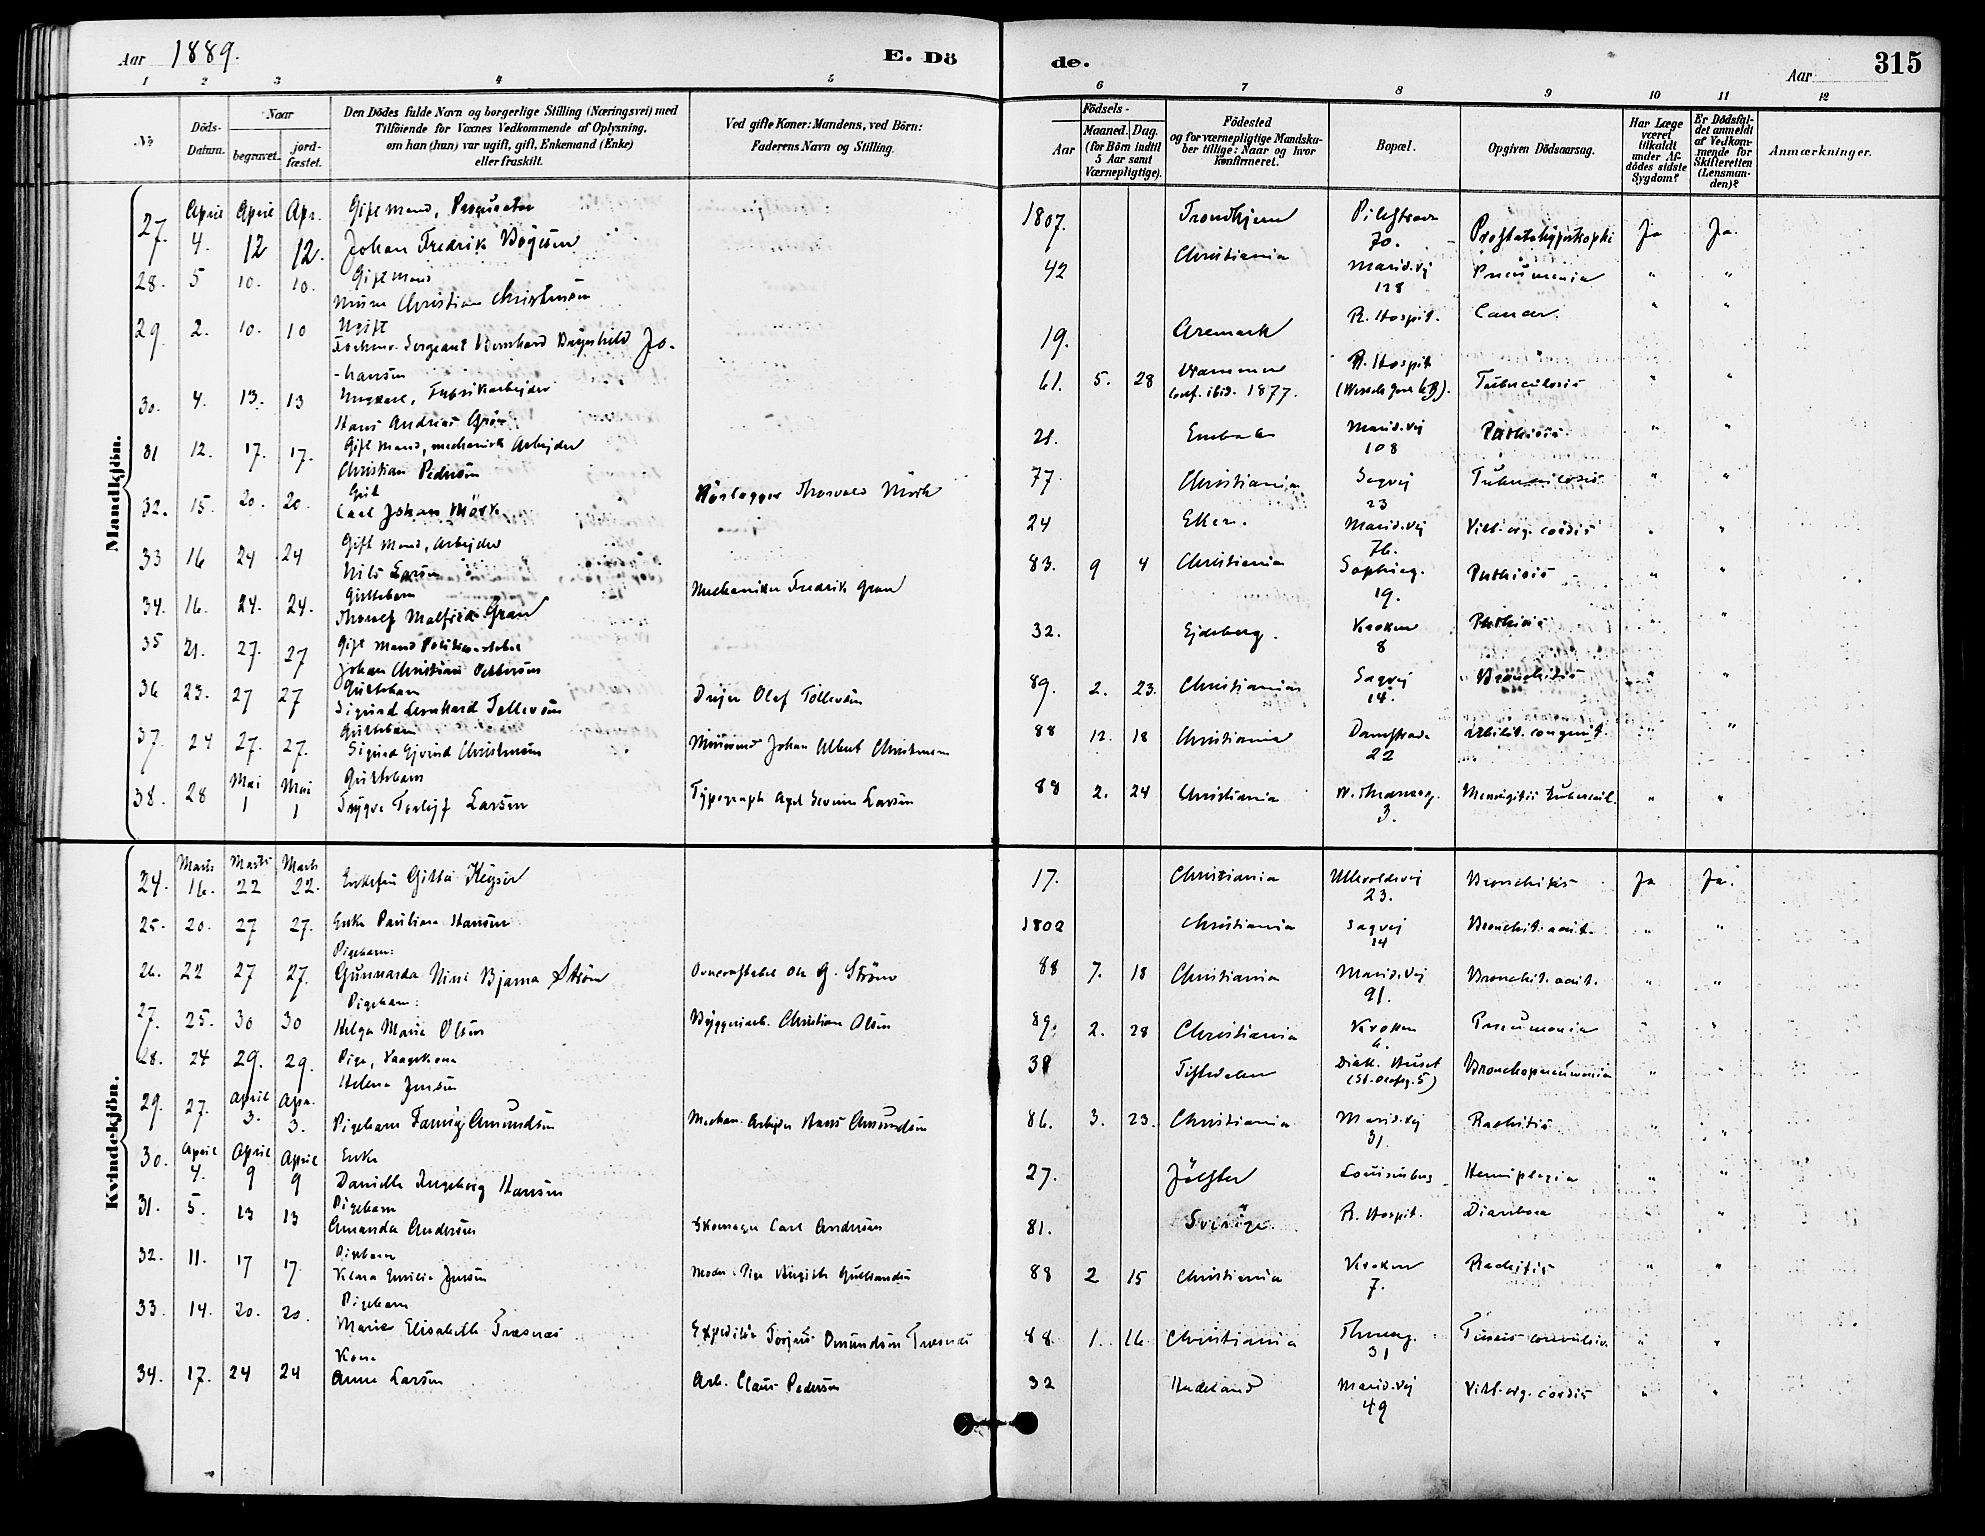 Aar 1889.
E. Dö
de.
Aar
315
1 2 3 4 5 6 7 8 9 10 11 12
No
Döds-Datum.
Naar
begravet.
jord-fæstet.
Den Dödes fulde Navn og borgerlige Stilling (Næringsvei) med
Tilföiende for Voxnes Vedkommende af Oplysning,
om han (hun) var ugift, gift, Enkemand (Enke)
eller fraskilt.
Ved gifte Koner: Mandens, ved Börn:
Faderens Navn og Stilling.
Födsels-
Aar
Maaned. Dag.
(for Börn indtil
5 Aar samt
Værnepligtige).
Födested
og for værnepligtige Mandska-
ber tillige: Naar og hvor
Konfirmeret.
Bopæl.
Opgiven Dödsaarsag.
Har Læge
været
tilkaldt
under Af-
dödes sidste
Sygdom?
Er Dödsfal-
det anmeldt
af Vedkom-
mende for
Skifteretten
(Lensman-
den)?
Anmærkninger.
Mandkjön.
April April Apr. Gift Mand,
27. 4. 12 12. Johan Fredrik 1807. Trondhjem 70. Ja Ja.
28. 5 10. 10. Gift Mand
Christian Christensen 42 Christiania Marid.vj 128 Pneumonia " "
29. 2. 10. 10 Ugift
Sergeant Jo-
hansen 19. Aremark R. Hospit. Cancer. " "
30. 4. 13. 13 Ungkarl, Fabrikarbejder
Hans Andreas 61. 5. 28 conf. ibid. 1877. R. Hospit Tuberculosis " "
31 12. 17. 17. Gift Mand, mechanisk Arbejder
Christian Pedersen 21. Marid.vej 108 Phthisis " "
32. 15. 20. 20. Gut
Carl Johan Mörk Thorvald Mörk 77. Christiania Sagvej 23 Tuberculosis " "
33 16 24 24 Gift Mand, Arbejder
Nils Larsen 24 Eker. Marid.vej 76. Vit. org. cordis " "
34. 16. 24. 24. Guttebarn
Gran Mechaniker Fredrik Gran 83. 9 4 Christiania Sophieg. 19. Phthisis " "
35 21. 27. 27 Gift Mand Politikonstabel
Johan Christian Pettersen 32. Ejdsberg. Kroken 8 Phthisis " "
36 23. 27 27 Guttebarn
Sigurd Tollevsen Drejer Olaf Tollevsen 89. 2. 23. Christiania Sagvej 14. Bronchitis " "
37. 24 27. 27. Guttebarn
Sigurd Ejvind Christensen Johan Albert Christensen 88 12. 18 Christiania 22 debilit. congenit. " "
38. 28 Mai 1 Mai 1 Guttebarn
Trygve Torlejf Larsen Typograph Axel Severin Larsen 88 2. 24 Christiania 3. Meningitis tubercul. " "
Kvindekjön.
Marts Marts Marts
24. 16. 22 22. Gitta Keyser 17. Christiania Ullevoldsvej 23. Bronchitis Ja Ja.
25. 20. 27 27. Enke Pauline Hansen 1802 Christiania Sagvej 14 Bronchit. acut. " "
26. 22 27 27. Pigebarn:
Gunnarda Nini Bjarna Ström Ole G. Ström 88 7. 18 Christiania Marid.vej 91. Bronchit. acut. " "
27. 25. 30 30 Pigebarn:
Helga Marie Olsen Byggeriarb. Christian Olsen 89. 2. 28 Christiania Kroken 6. Pneumonia " "
28. 24 29. 29. Pige, Vaagekone
Helene Jensen 38 Tistedalen Diak. Huset (St. Olafsg. 5) Bronchopneumonia " "
29. 27. April 3. Apr. 3. Pigebarn Fanny Amundsen Mechan. Arbejder Hans Amundsen 86. 3. 23. Christiania Marid.vej 31. Rachitis " "
30. April 4. April 9 April 9 Enke
Danielle Ingeborg Hansen 27. Jölster Louisenberg Hemiplegia " "
31. 5. 13 13 Pigebarn
Amanda Andersen Skomager Carl Andersen 81. Sverige. R. Hospit. Diarrhoea "
32. 11. 17 17 Pigebarn
Klara Emilie Jensen Moder: Pige Gulbrandsen 88 2 15 Christiania Kroken 7. Rachitis " "
33. 14. 20. 20. Pigebarn
Marie Elisabeth Træsnæs Torjus Omundsen Træsnæs 88. 1. 16 Christiania 31 Tussis convulsiv. " "
34. 17. 24 24 Kone
Anne Larsen Arb. Claus Pedersen 32 Hadeland Marid.vej 49 Vit. org. cordis " "